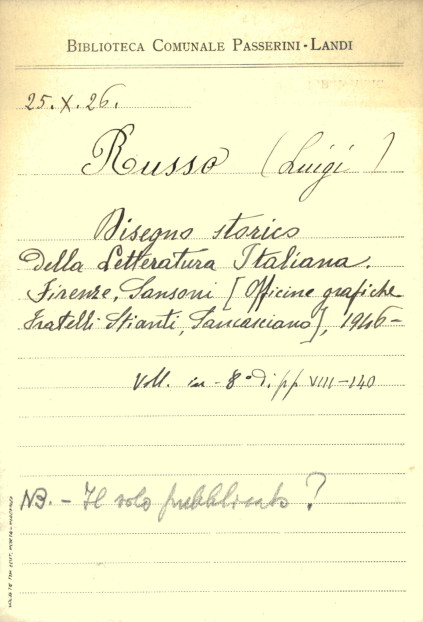 BIBLIOTECA COMUNALE PASSERINI-LANDI
25.X.26.
Russo (Luigi)
Disegno storico
della Letteratura Italiana.
Firenze, Sansoni [Officine grafiche
Fratelli Stianti, Sancasciano], 1946-
Voll. in-8° di pp VIII-140
NB. - Il solo pubblicato?